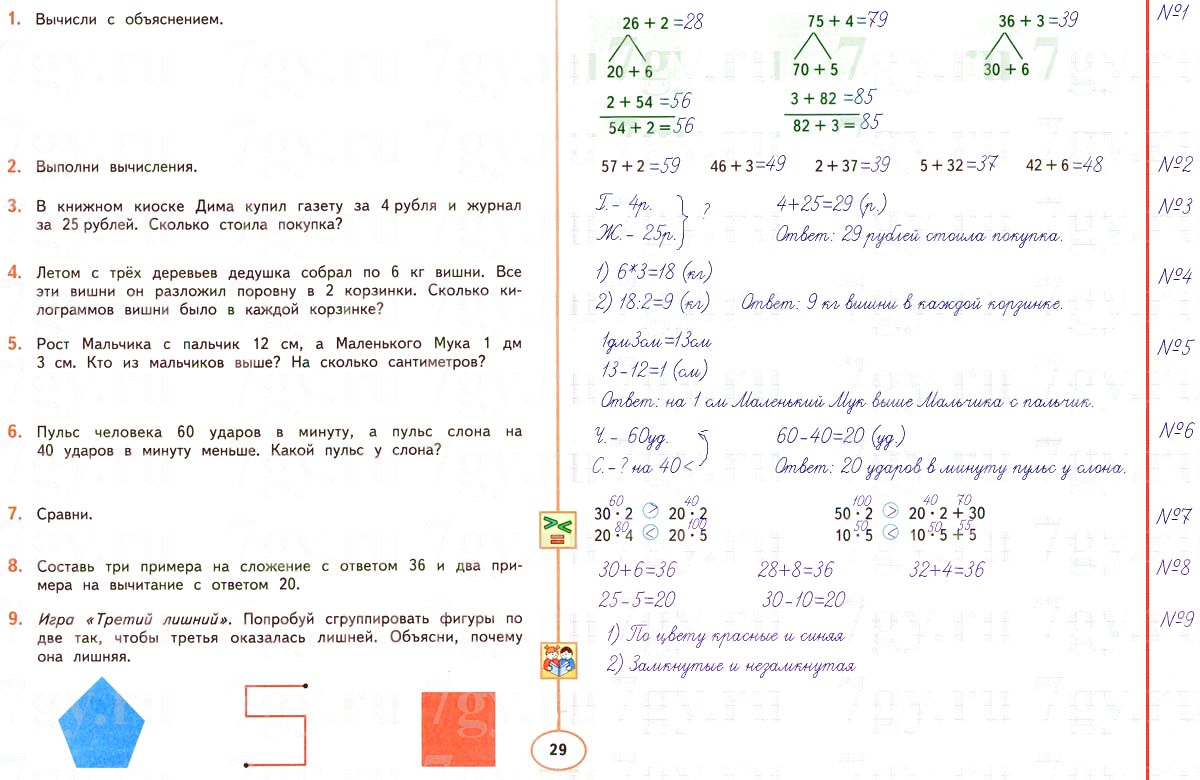 1. Вычисли с объяснением.
26 + 2 =28 75 + 4 =79 36 + 3 =39 №1
20 + 6 70 + 5 30 + 6
2 + 54 =56 3 + 82 =85
54 + 2 =56 82 + 3 =85
2. Выполни вычисления.
57 + 2 =59 46 + 3 =49 2 + 37 =39 5 + 32 =37 42 + 6 =48 №2
3. В книжном киоске Дима купил газету за 4 рубля и журнал
за 25 рублей. Сколько стоила покупка?
Г.- 4р. } ? 4+25=29 (р.) №3
Ж.- 25р. Ответ: 29 рублей стоила покупка.
4. Летом с трёх деревьев дедушка собрал по 6 кг вишни. Все
эти вишни он разложил поровну в 2 корзинки. Сколько ки-
лограммов вишни было в каждой корзинке?
1) 6*3=18 (кг) №4
2) 18:2=9 (кг) Ответ: 9 кг вишни в каждой корзинке.
5. Рост Мальчика с пальчик 12 см, а Маленького Мука 1 дм
3 см. Кто из мальчиков выше? На сколько сантиметров?
1дм3см=13см №5
13-12=1 (см)
Ответ: на 1 см Маленький Мук выше Мальчика с пальчик.
6. Пульс человека 60 ударов в минуту, а пульс слона на
40 ударов в минуту меньше. Какой пульс у слона?
Ч. - 60уд. 60-40=20 (уд.) №6
С. - ? на 40 < Ответ: 20 ударов в минуту пульс у слона.
7. Сравни.
60 40 100 40 70
30 · 2 > 20 · 2 50 · 2 > 20 · 2 + 30 №7
80 100 50 50 55
20 · 4 < 20 · 5 10 · 5 < 10 · 5 + 5
8. Составь три примера на сложение с ответом 36 и два при-
мера на вычитание с ответом 20.
30+6=36 28+8=36 32+4=36 №8
25-5=20 30-10=20
9. Игра «Третий лишний». Попробуй сгруппировать фигуры по
две так, чтобы третья оказалась лишней. Объясни, почему
она лишняя.
№9
1) По цвету красные и синяя
2) Замкнутые и незамкнутая
29
7gy.ru